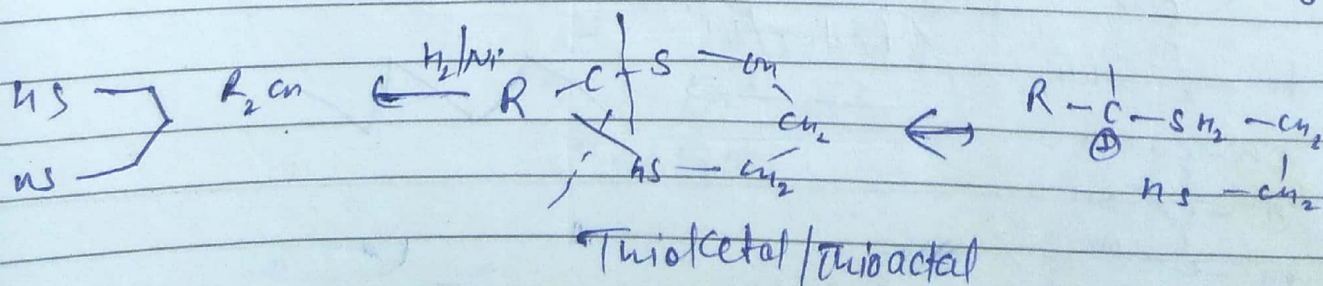 H₂/Ni
HS R₂CH ← R - C - S - CH
CH₂
HS - CH₂
HS
↔ R - C - SH₂ - CH₂
⊕
HS - CH₂
Thioketal/Thioactal